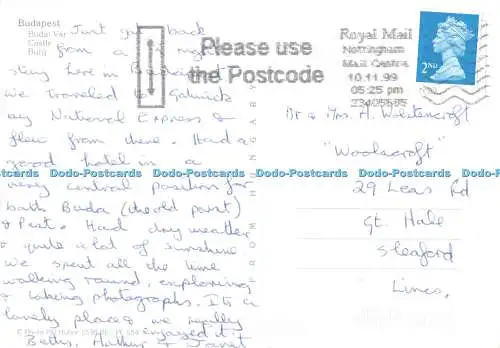 Budapest
Budai Vár
Castle
Burg
Just got back
from a night
stay here in Budapest
we travelled to Gatwick
by National Express &
flew from there. Had a
good hotel in a
very central position for
both Buda (the old part)
& Pest. Had dry weather
& quite a lot of sunshine
We spent all the time
walking round, exploring
& taking photographs. It's a
lovely place & we really
enjoyed it.
Betty, Arthur & Janet
Please use
the Postcode
Royal Mail
Nottingham
Mail Centre
10.11.99
05:25 pm
23405585
2ND
Dr & Mrs. A. Wolstencroft
"Woolscroft"
29 Leas Rd
Gt. Hale
Sleaford
Lincs.
Dodo-Postcards Dodo-Postcards Dodo-Postcards Dodo-Postcards Dodo-Postcards Dodo-Postcards
FROM HUNGARY